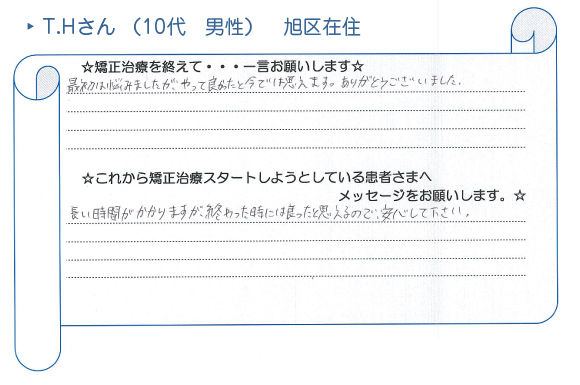 ▶ T.Hさん （10代　男性）　旭区在住
☆矯正治療を終えて・・・一言お願いします☆
最初は悩みましたが、やって良かったと今では思えます。ありがとうございました。
☆これから矯正治療スタートしようとしている患者さまへ
メッセージをお願いします。☆
長い時間がかかりますが、終わった時には良ったと思えるので、安心して下さい。